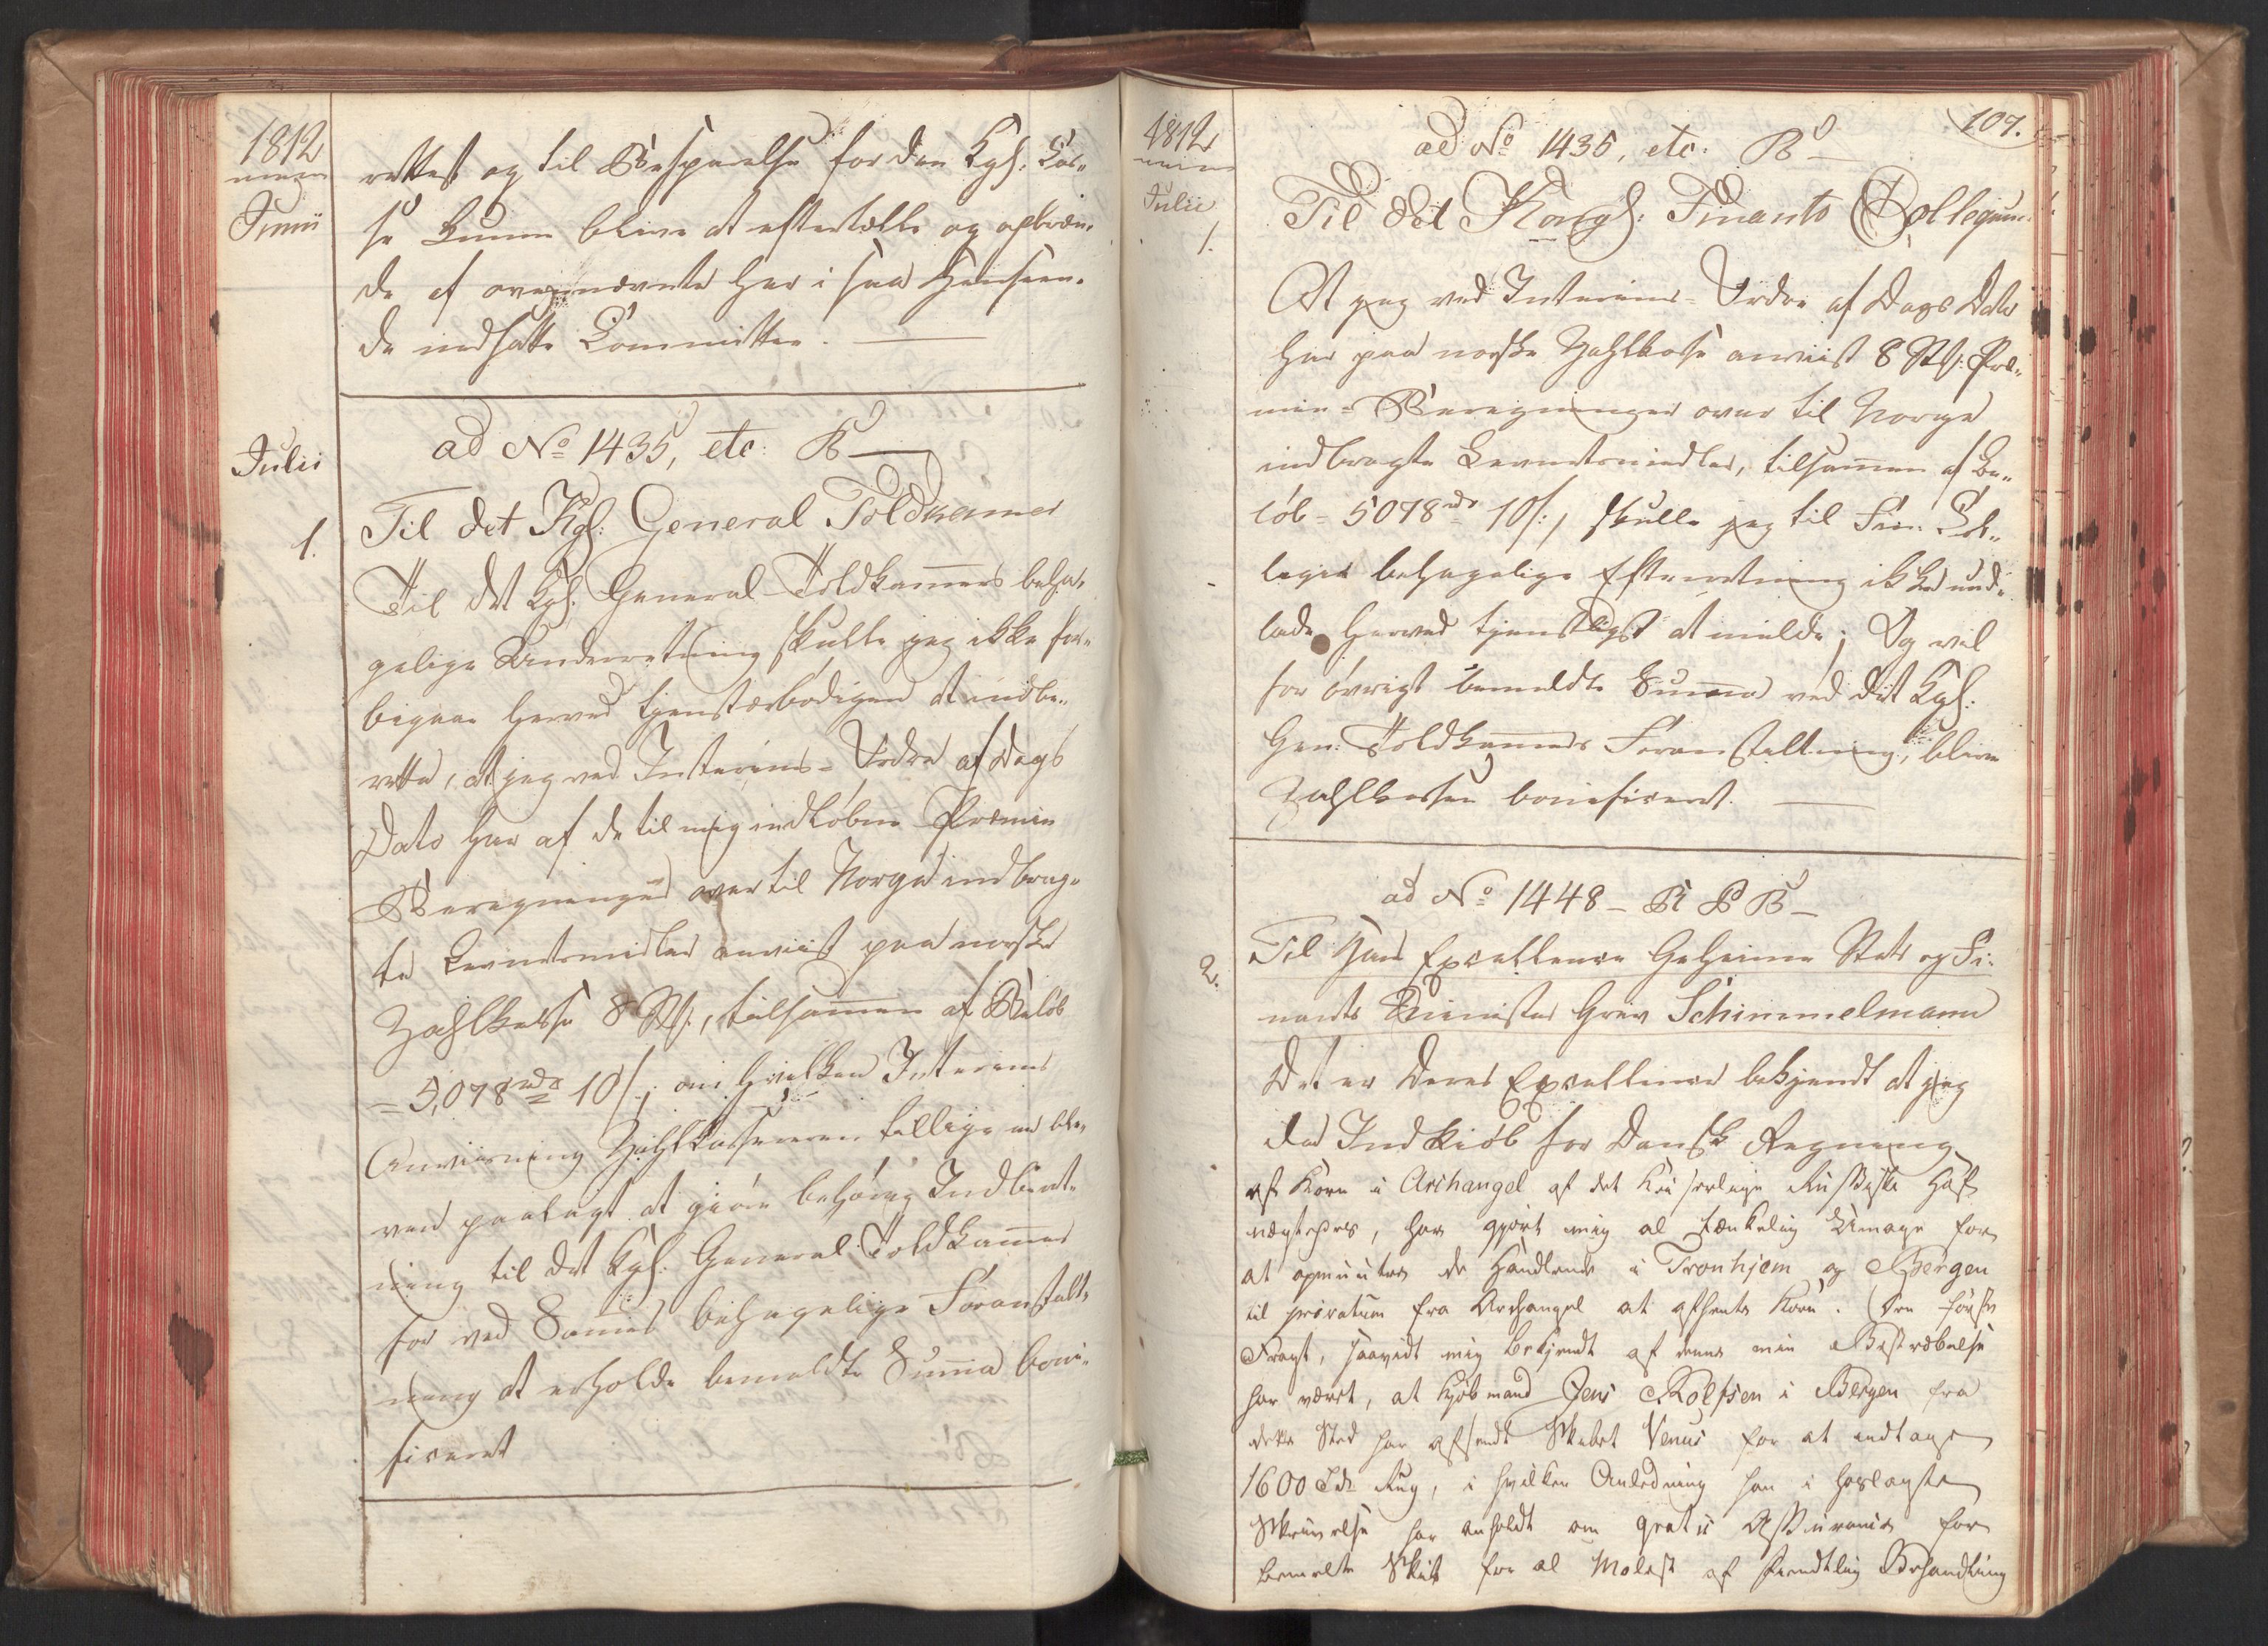 1812
Junii
rettest og til Besparelse for den Kgl. Cas„
se kunne blive at eftertælle og opbræn„
de af ovennævnte her i saa Henseen„
de nedsatte Committee.
ad No 1435, etc: B
Julii
1.
Til det Kgl: General Toldkamer
Til det Kgl. General-Toldkamers beha„
gelige Underretning skulle jeg ikke for„
bigaae herved tjenstærbødigen at indbe„
rette, at jeg ved Interims-Ordre af Dags
Dato har af de til mig indløbne Præmie
Beregninger over til Norge indbrag„
te Levnetsmidler anviist paa norske
Zahlkasse 8 St., tilsamen af Beløb
= 5,078 rd 10 s; om hvilken Interims
Anviisning Zahlkassereren tillige er ble„
ven paalagt at giøre behørig Indberet„
ning til det Kgl: General Toldkamer
for ved Sammes behagelige Foranstalt„
ning at erholde bemeldte Summa boni„
ficeret
1812
Julii
1.
107.
ad No 1435, etc: B
Til det Kongl: Finants Collegium
At jeg ved Interims-Ordre af Dags Dato
har paa norske Zahlkasse anviist 8 St: Præ„
mie-Beregninger over til Norge
indbragte Levnetsmidler, tilsamen af Be„
løb = 5078 rd 10 s, skulle jeg til Fin: Col„
legiets behagelige Efterretning ikke und„
lade herved tjenstligst at melde; Og vil
for øvrigt bemeldte Summa ved det Kgl:
Gen: Toldkamers Foranstaltning, blive
Zahlkassen bonificeret.
ad No 1448 - R P B
2.
Til Hans Excellence Geheime Stats og Fi„
nants Minister Grev Schimmelmann
Det er Deres Excellence bekjendt at jeg
da Indkiøb for Dansk Regning
af Korn i Archangel af det Keiserlige Russiske Hof
nægtedes, har gjort mig al tænkelig Umage for
at opmuntre de Handlende i Tronhjem og Bergen
til privatim fra Archangel at afhente Korn. Den første
Frugt, saavidt mig bekjendt af denne min Bestræbelse
har været, at Kjøbmand Jens Rolfsen i Bergen fra
dette Sted har afsendt Skibet Venus for at indtage
1600 Tdr Rug, i hvilken Anledning han i hoslagte
Skrivelse har anholdt om gratis Assurance for
bemeldte Skib for al Molest af fiendtlig Behandling